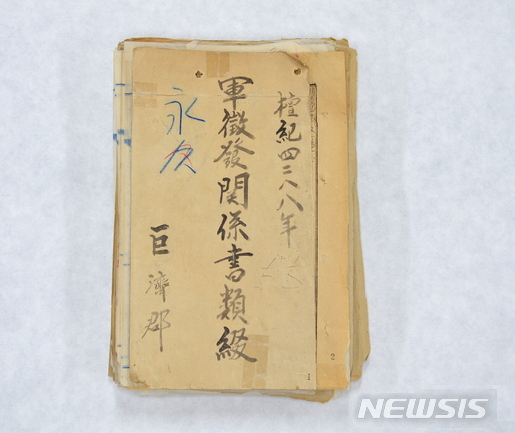 檀紀四二八八年
軍徵發関係書類綴
永久
巨濟郡
1
2
NEWSIS